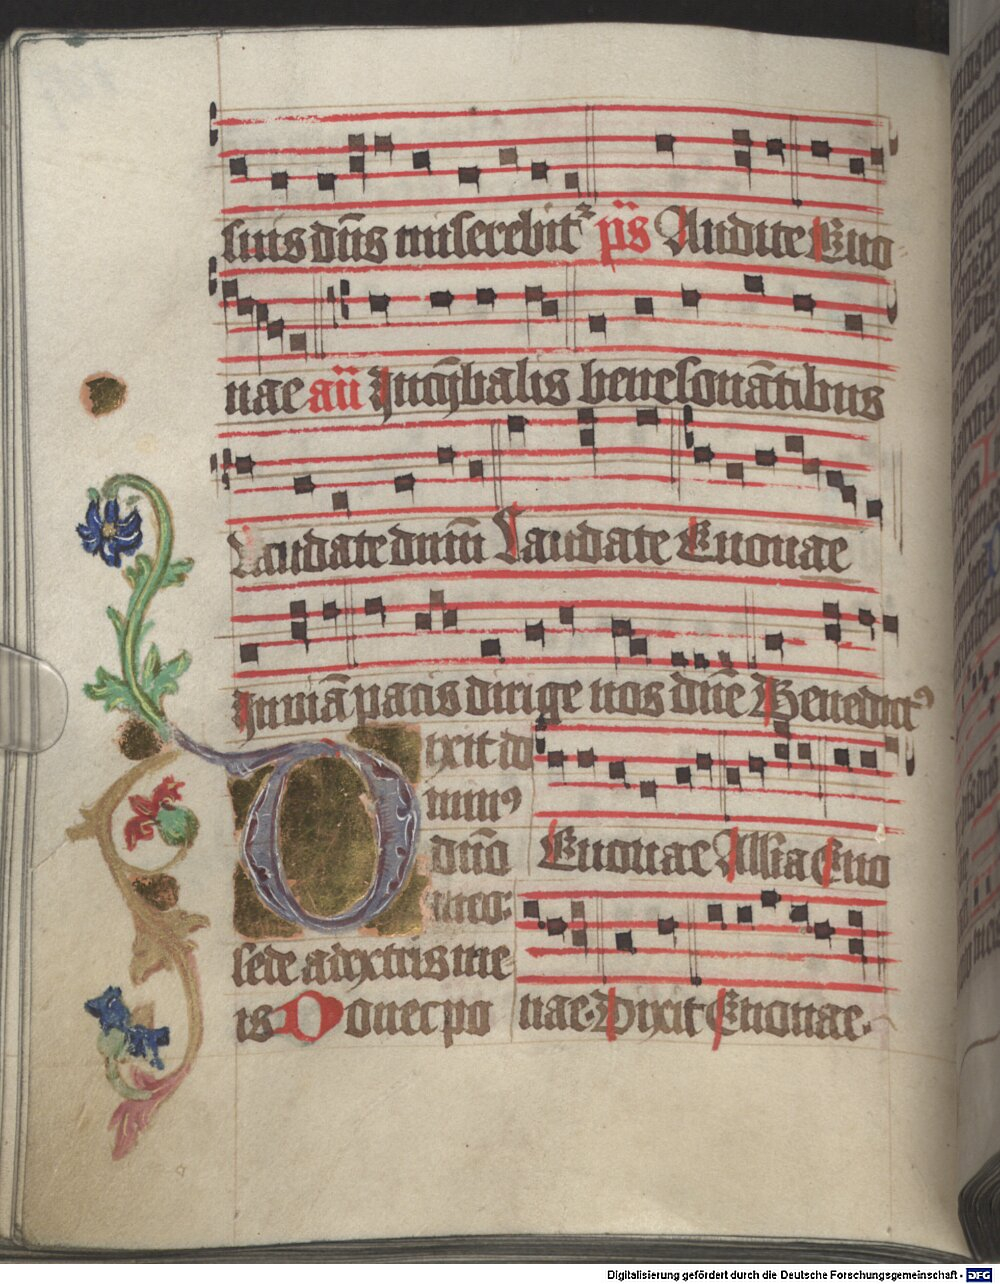 suis dn̄s miserebit᷑ p̄s Audite Euo
uae an̄ In cȳbalis benesonātibus
Laudate dnm̄ Laudate Euouae
In viā pacis dirige nos dn̄e Benedictꝰ
ixit do
minꝰ
dn̄o
meo:
sede a dextris me
is Donec po
Euouae Allīa Euo
uae Dixit Euouae.
Digitalisierung gefördert durch die Deutsche Forschungsgemeinschaft - DFG